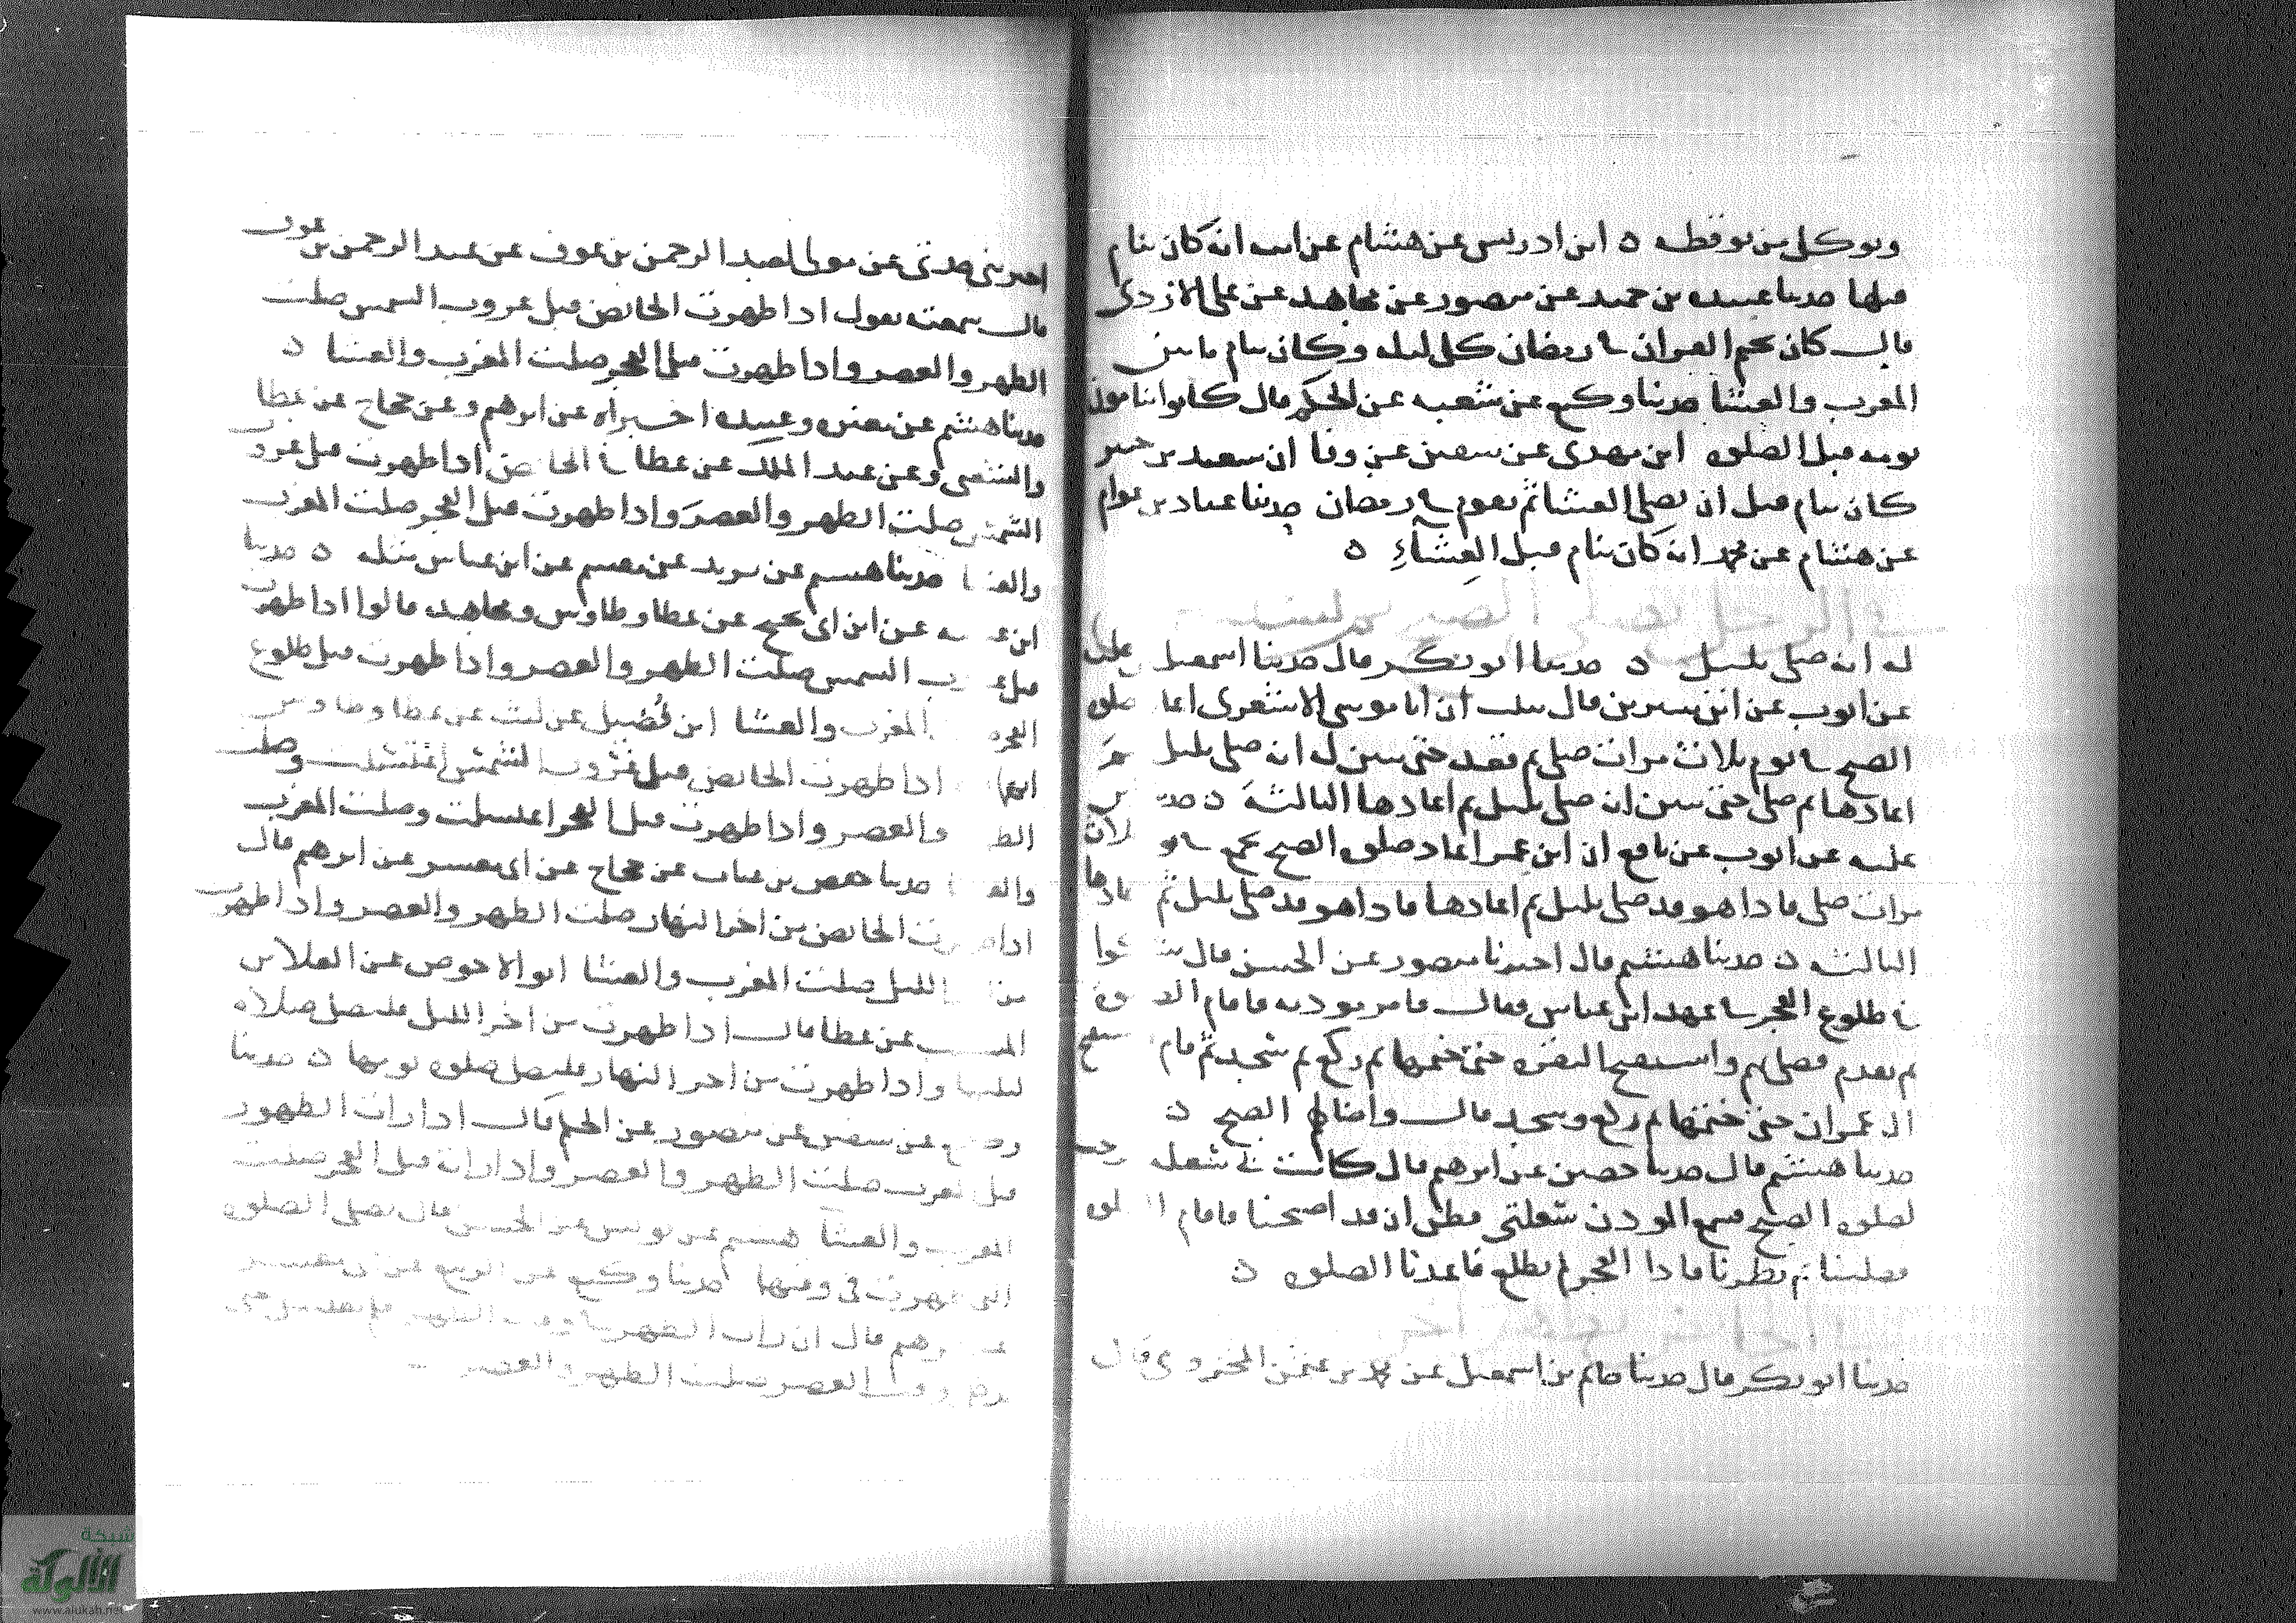 ويوكل من يوقظه ه ابن ادريس عن هشام عن ابيه انه كان ينام
قبلها حدثنا عبيده بن حميد عن منصور عن مجاهد عن على الازدى
قال كان يختم القران فى رمضان كل ليله وكان ينام ما بين
المغرب والعشا حدثنا وكيع عن شعبه عن الحكم قال كانوا ينامون
نومه قبل الصلوه ابن مهدى عن سفين عن وقا ان سعيد بن جبير
كان ينام قبل ان يصلى العشا ثم يقوم فى رمضان حدثنا عباد بن عوام
عن هشام عن محمد انه كان ينام قبل العشاء ه
فى الرجل يصلى الصبح ثم
له انه صلى بليل ه حدثنا ابو بكر قال حدثنا اسمعيل علية
عن ايوب عن ابن سيرين قال نبيت ان ابا موسى الاشعرى اعا صلوه
الصبح فى يوم ثلاث مرات صلى ثم قعد حتى تبين له انه صلى بليل
اعادها ثم صلى حتى تبين انه صلى بليل ثم اعادها الثالثة ه حد
عليه عن ايوب عن نافع ان ابن عمر اعاد صلوه الصبح بجمع فى يو ثلاث
مرات صلى فاذا هو قد صلى بليل ثم اعادها فاذا هو قد صلى بليل ثم عادها
الثالثه ه حدثنا هشيم قال اخبرنا منصور عن الحسن قال شكوا
فى طلوع الفجر فى عهد ابن عباس فقال فامر موذنه فاقام الصلوة
ثم تقدم فصلى بهم واستفتح البقره حتى ختمها ثم ركع ثم سجد ثم قام ستفتح
ال عمران حتى ختمها ثم ركع وسجد قال واضا لهم الصبح ه
حدثنا هشيم قال حدثنا حصين عن ابرهيم قال كانت فى شعل
لصلوه الصبح فسمع الموذن شعلتى فظن ان قد اصبحنا فاقام الصلوه
فصلينا ثم نظرنا فاذا الفجر لم يطلع فاعدنا الصلوه ه
فى الحايض تطهر اخر
حدثنا ابو بكر قال حدثنا حاتم بن اسمعيل عن محمد بن عثمن المخزومى قال
اخبرتنى جدتى عن مولى لعبد الرحمن بن عوف عن عبد الرحمن بن عوف
قال سمعته يقول اذا طهرت الحايض قبل غروب الشمس صلت
الظهر والعصر واذا طهرت قبل الفجر صلت المغرب والعشا ه
حدثنا هشيم عن مغيره وعبيده اخبراه عن ابرهيم وعن حجاج عن عطا
والشعبى وعن عبد الملك عن عطا فى الحايض اذا طهرت قبل غروب
الشمس صلت الظهر والعصر واذا طهرت قبل الفجر صلت المغرب
والعشا حدثنا هشيم عن يزيد عن مقسم عن ابن عباس مثله ه حدثنا
ابن عيينه عن ابن ابى نجيح عن عطا وطاوس ومجاهد قالوا اذا طهرت
قبل غروب الشمس صلت الظهر والعصر واذا طهرت قبل طلوع
الفجر المغرب والعشا ابن فضيل عن ليث عن عطا وطاوس
اذا طهرت الحايض قبل غروب الشمس اغتسلت وصلت
الظ والعصر واذا طهرت قبل الفجر اغتسلت وصلت المغرب
والعشا حدثنا حفص بن غياث عن حجاج عن ابى معشر عن ابرهيم قال
اذا طهرت الحايض من اخر النهار صلت الظهر والعصر واذا طهرت
من الليل صلت المغرب والعشا ابو الاحوص عن العلا بن
المسيب عن عطا قال اذا طهرت من اخر الليل فلتصل صلاه
ليلتها واذا طهرت من اخر النهار فلتصل صلوه يومها ه حدثنا
وكيع عن سفين عن منصور عن الحكم قال اذا رات الطهور
قبل المغرب صلت الظهر والعصر واذا رات قبل الفجر صلت
المغرب والعشا هشيم عن يونس عن الحسن قال تصلى الصلوه
التى طهرت فى وقتها حدثنا وكيع عن الربيع عن
عن ابرهيم قال ان رات الطهر فى وقت الظهر فلم تغتسل حتى
يدخل وقت العصر صلت الظهر والعصر
شبكة
الألوكة
www.alukah.net